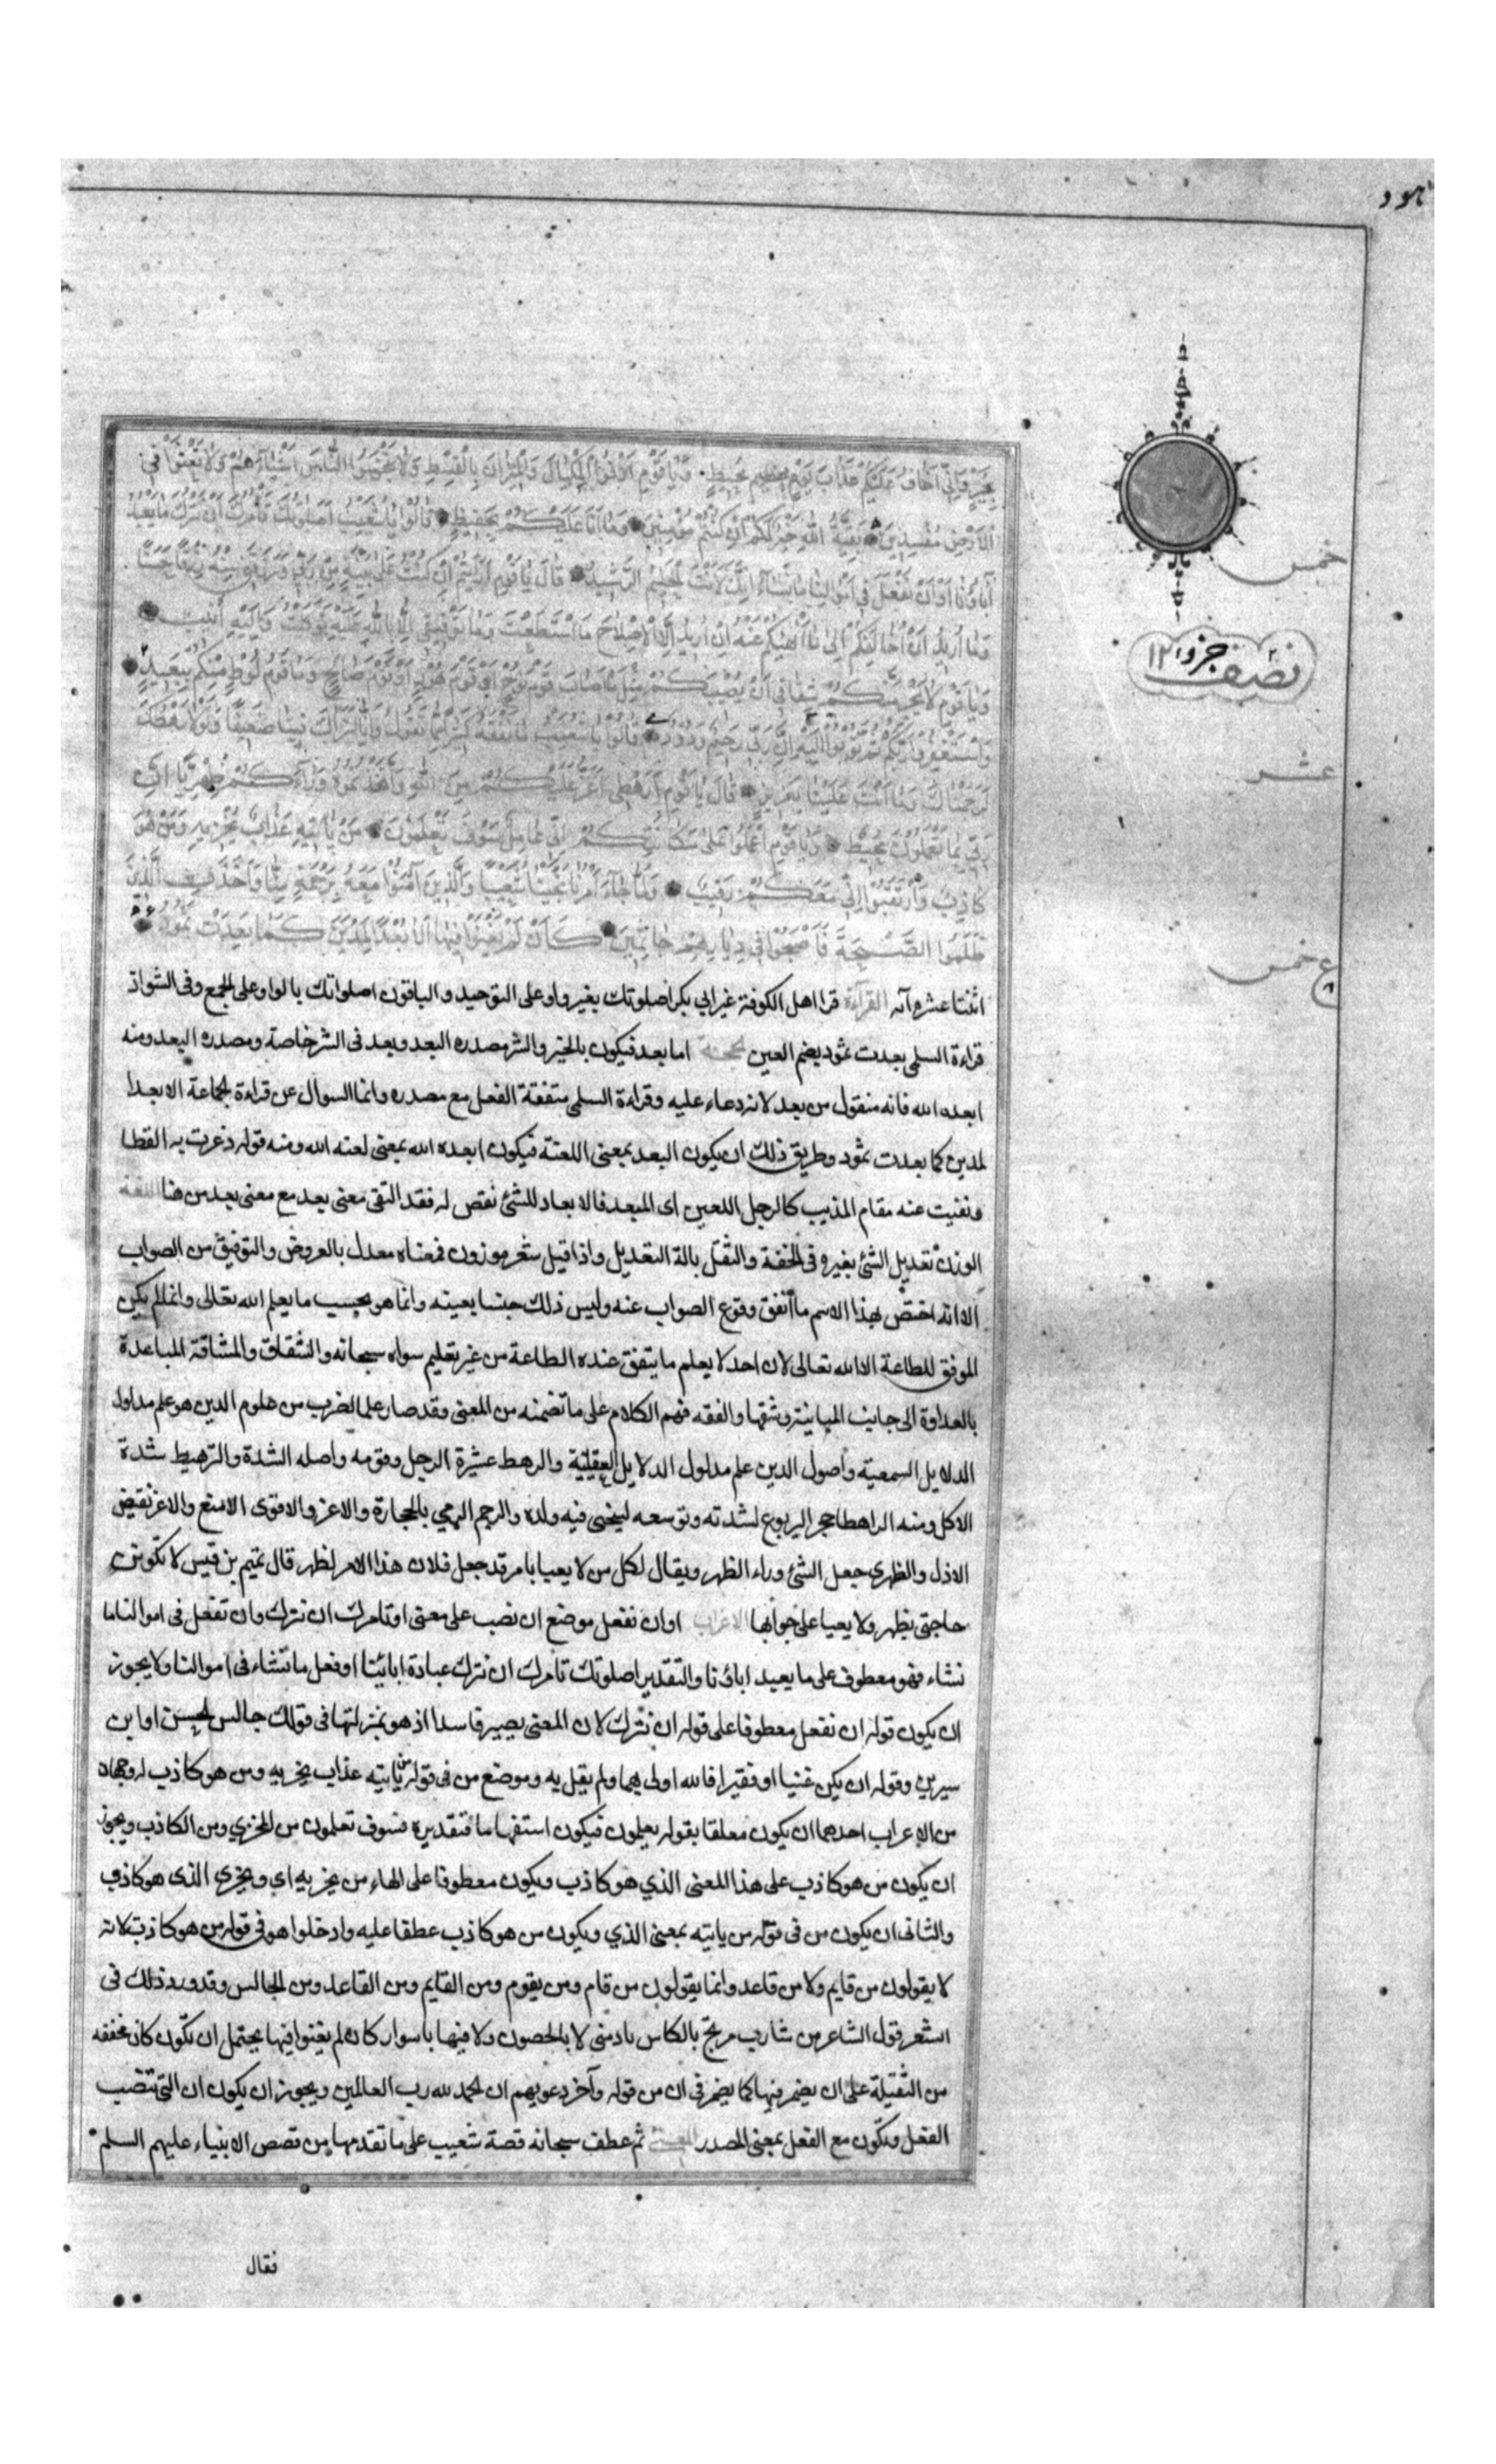 هود
بخير وإني أخاف عليكم عذاب يوم محيط ويا قوم أوفوا المكيال والميزان بالقسط ولا تبخسوا الناس أشياءهم ولا تعثوا في
الأرض مفسدين بقيّة الله خير لكم إن كنتم مؤمنين وما أنا عليكم بحفيظ قالوا يا شعيب أصلوتك تأمرك أن نترك ما يعبد
آباؤنا أو أن نفعل في أموالنا ما نشاء إنك لأنت الحليم الرشيد قال يا قوم أرأيتم إن كنت على بينة من ربي ورزقني منه رزقا حسنا
وما أريد أن أخالفكم إلى ما أنهيكم عنه إن أريد إلا الإصلاح ما استطعت وما توفيقي إلا بالله عليه توكلت وإليه أنيب
ويا قوم لا يجرمنكم شقاقي أن يصيبكم مثل ما أصاب قوم نوح أو قوم هود أو قوم صالح وما قوم لوط منكم ببعيد
واستغفروا ربكم ثم توبوا إليه إن ربي رحيم ودود قالوا يا شعيب ما نفقه كثيرا مما تقول وإنا لنراك فينا ضعيفا ولولا رهطك
لرجمناك وما أنت علينا بعزيز قال يا قوم أرهطي أعز عليكم من الله واتخذتموه وراءكم ظهريا إن
ربي بما تعملون محيط ويا قوم اعملوا على مكانتكم إني عامل سوف تعلمون من يأتيه عذاب يخزيه ومن هو
كاذب وارتقبوا إني معكم رقيب ولما جاء أمرنا نجينا شعيبا والذين آمنوا معه برحمة منا وأخذت الذين
ظلموا الصيحة فأصبحوا في ديارهم جاثمين كأن لم يغنوا فيها ألا بعدا لمدين كما بعدت ثمود
اثنتا عشره آيه القرآءة قرا اهل الكوفة غير ابي بكر اصلوتك بغير واو على التوحيد والباقون اصلواتك بالواو على الجمع وفى الشواذ
قراءة السلمي بعدت ثمود بضم العين الحجة اما بعد فيكون بالخير والشر مصدره البعد وبعد فى الشر خاصة ومصدره البعد ومنه
ابعده الله فانه منقول من بعد لانه دعاء عليه وقراءة السلمي متفقة الفعل مع مصدره وانما السوال عن قراءة الجماعة الا بعدا
لمدين كما بعدت ثمود وطريق ذلك ان يكون البعد بمعنى اللعنة فيكون ابعده الله بمعنى لعنه الله ومنه قوله ذعرت به القطا
ونفيت عنه مقام الذيب كالرجل اللعين اى المبعد فالابعاد للشئ نقص له فقد التقى معنى بعد مع معنى بعد من هنا اللغة
الوزن تعديل الشئ بغيره فى الخفة والثقل بالة التعديل واذا قيل شعر موزون فمعناه معدل بالعروض والتوفيق من الصواب
الا انه اختص بهذا الاسم ما اتفق وقوع الصواب عنه وليس ذلك جنسا بعينه وانما هو بحسب ما يعلم الله تعالى وانما لم يكن
الموفق للطاعة الا الله تعالى لان احدا لا يعلم ما يتفق عنده الطاعة من غير تعليم سواه سبحانه والشقاق والمشاقة المباعدة
بالعداوة الى جانب المباينة وشقها والفقه فهم الكلام على ما تضمنه من المعنى وقد صار علما لضرب من علوم الدين هو علم مدلول
الدلايل السمعية وأصول الدين علم مدلول الدلايل العقلية والرهط عشيرة الرجل وقومه واصله الشدة والترهيط شدة
الاكل ومنه الراهطا جحر اليربوع لشدته وتوسعه ليخبى فيه ولده والرجم الرمي بالحجارة والاعز والاقوى الامنع والاعز نقيض
الاذل والظهري جعل الشئ وراء الظهر ويقال لكل من لا يعبا بامر قد جعل فلان هذا الامر لظهر قال تميم بن قيس لا تكونن
حاجتى بظهر ولا يعيا على جوابها الاعراب او ان نفعل موضع ان نصب على معنى او تامرك ان نترك وان نفعل فى اموالنا ما
نشاء فهو معطوف على ما يعبد اباؤنا والتقدير اصلوتك تامرك ان نترك عبادة ابائنا او فعل ما نشاء فى اموالنا ولا يجوز
ان يكون قوله ان نفعل معطوفا على قوله ان نترك لان المعنى يصير فاسدا اذ هو بمنزلتها فى قولك جالس الحسن او ابن
سيرين وقوله ان يكن غنيا او فقيرا فالله اولى بهما ولم يقل به وموضع من فى قوله من ياتيه عذاب يخزيه ومن هو كاذب له وجهان
من الاعراب احدهما ان يكون معلقا بقوله يعلمون فيكون استفهاما فتقديره فسوف تعلمون من المخزي ومن الكاذب ويجوز
ان يكون من هو كاذب على هذا المعنى الذي هو كاذب ويكون معطوفا على الهاء من يخزيه اي ويخزى الذى هو كاذب
والثانى ان يكون من فى قوله من ياتيه بمعنى الذي ويكون من هو كاذب عطفا عليه وادخلوا هو فى قوله من هو كاذب لانه
لا يقولون من قايم ولا من قاعد وانما يقولون من قام ومن يقوم ومن القايم ومن القاعد ومن الجالس وقد ورد ذلك فى
الشعر قول الشاعر من شارب مربح بالكاس نادمنى لا بالحصور ولا فيها بسوار كان لم يغنوا فيها يحتمل ان تكون كان مخففه
من الثقيلة على ان يضمر فيها كما يضمر فى ان من قوله وآخر دعويهم ان الحمد لله رب العالمين ويجوز ان يكون ان التى تنصب
الفعل وتكون مع الفعل بمعنى المصدر المعنى ثم عطف سبحانه قصة شعيب على ما تقدمها من قصص الانبياء عليهم السلم
فقال
خمس
نصف جزو ١٢
عشر
ع خمس